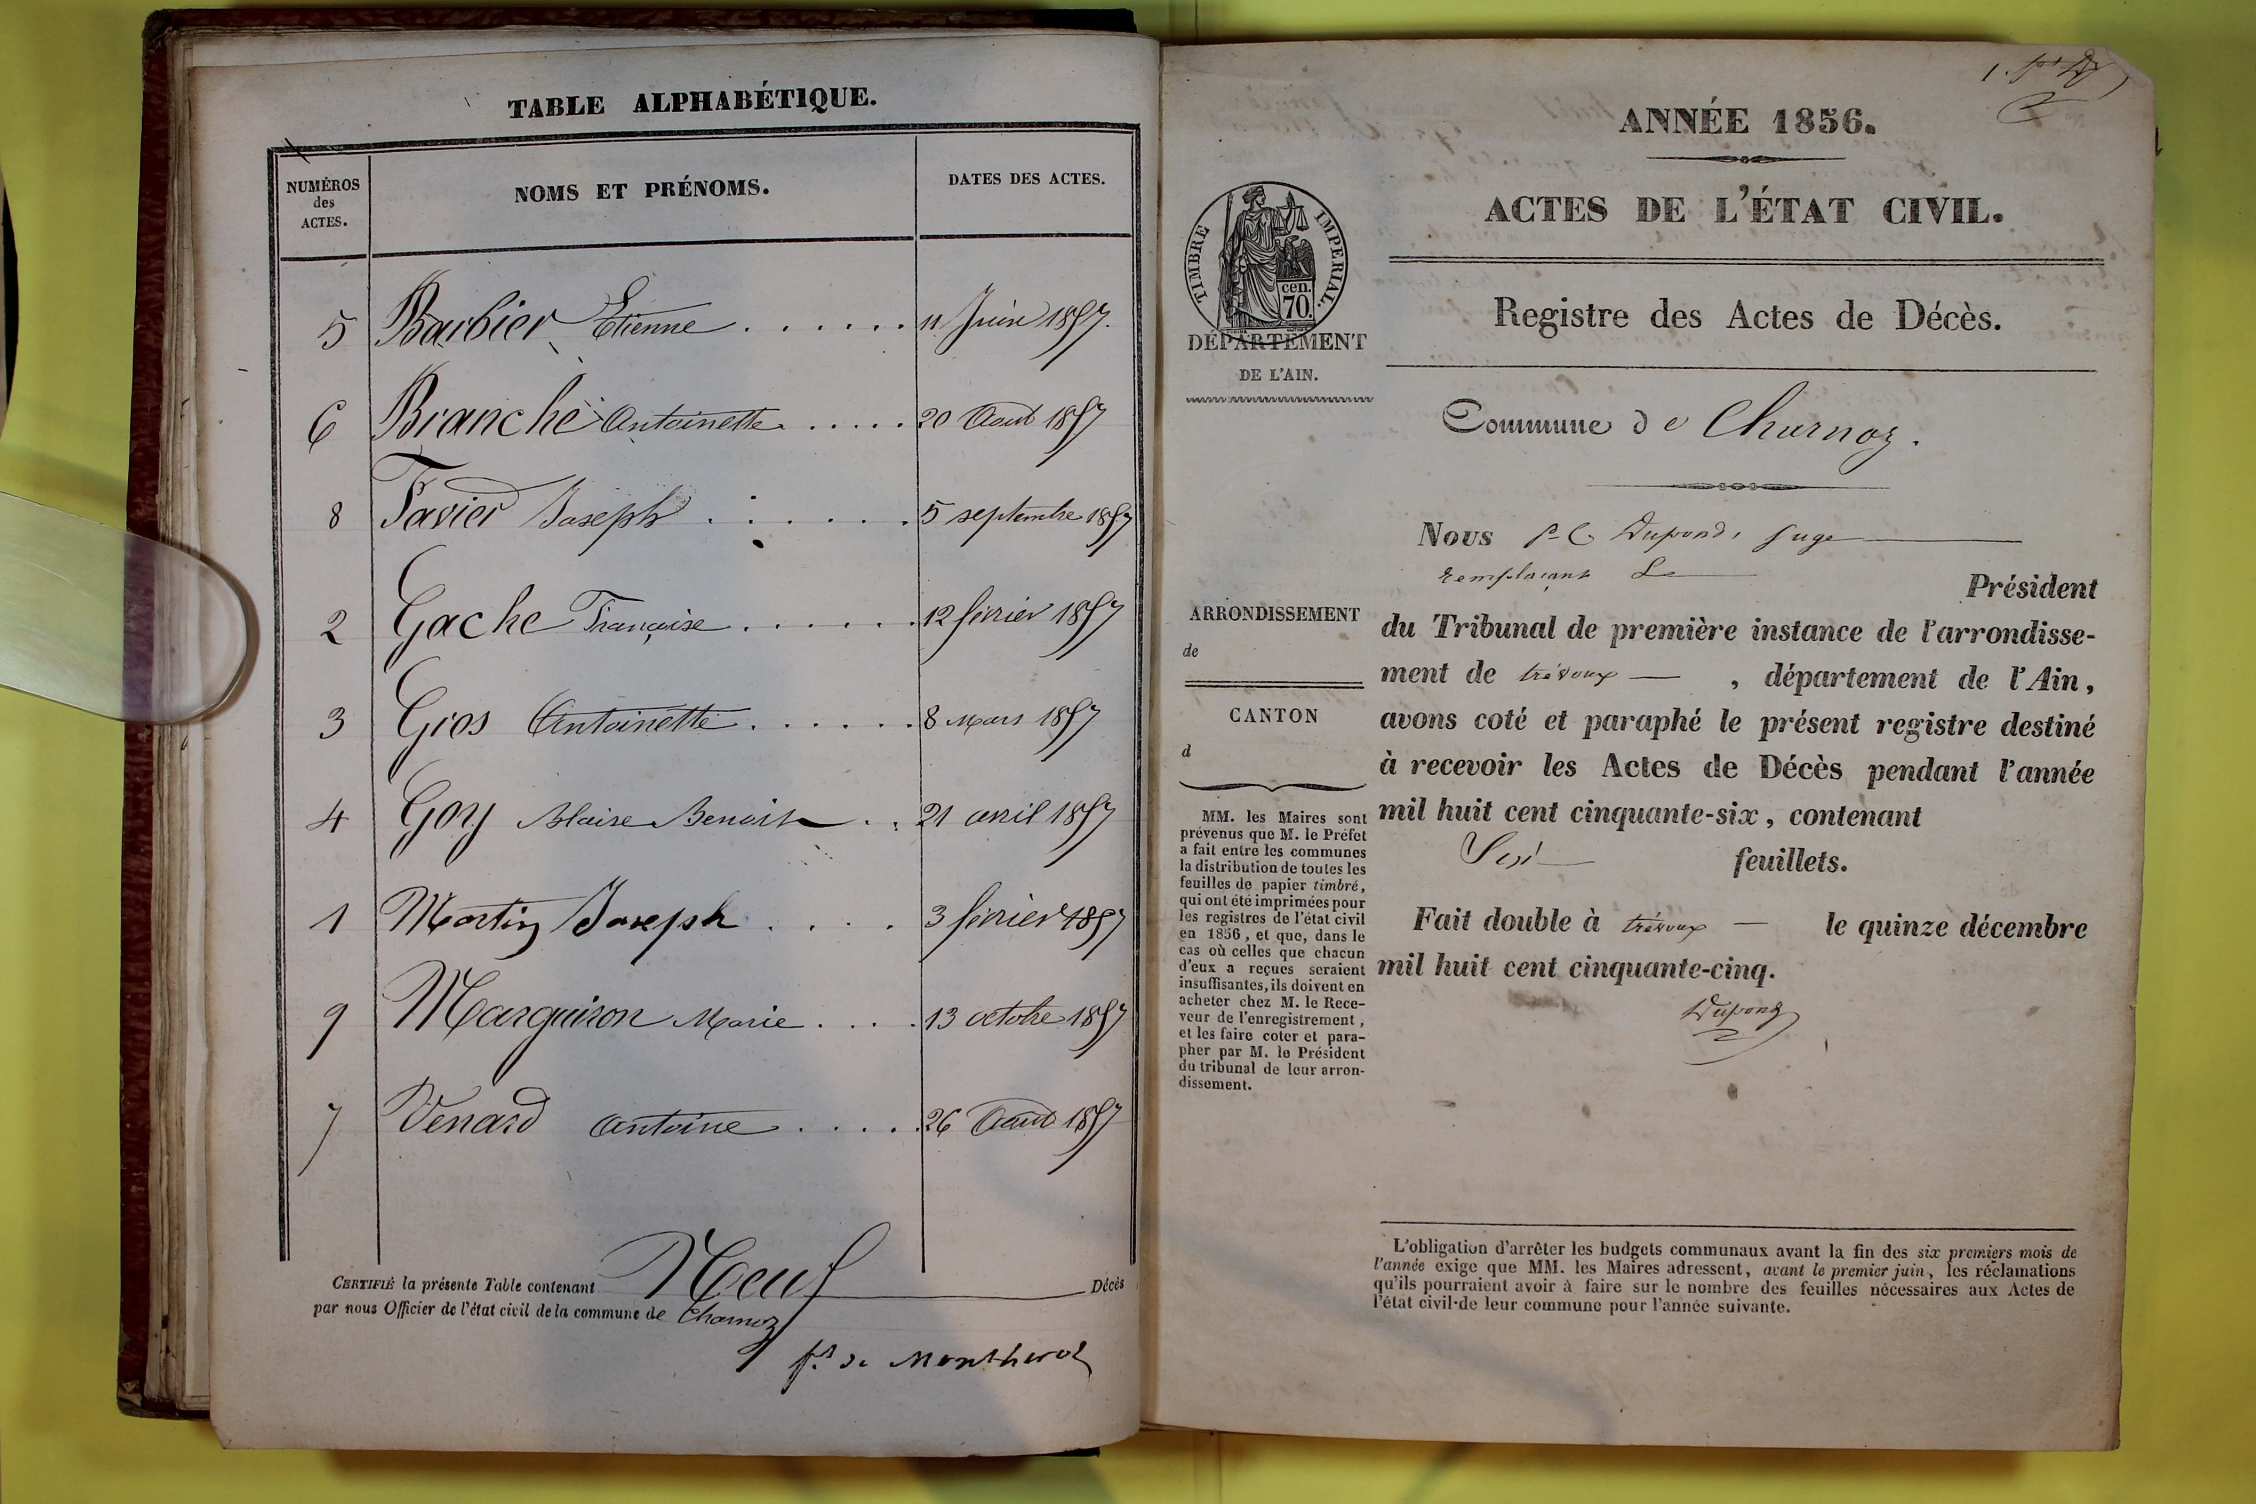 TABLE ALPHABÉTIQUE.
NUMÉROS des ACTES.
NOMS ET PRÉNOMS.
DATES DES ACTES.
5 Barbier Etienne . . . . . . 11 Juin 1857.
6 Branche Antoinette . . . . . 20 Aout 1857
8 Favier Joseph . . . . . . 5 septembre 1857
2 Gache Françoise . . . . . . 12 février 1857
3 Gros Antoinette . . . . . . 8 Mars 1857
4 Goy Blaise Benoit . . 21 avril 1857
1 Martin Joseph . . . . 3 février 1857
9 Marguiron Marie . . . . 13 octobre 1857
7 Venard Antoine . . . . . 26 Aout 1857
CERTIFIÉ la présente Table contenant Neuf Décès
par nous Officier de l'état civil de la commune de Charnoz
de Montherot
ANNÉE 1856.
ACTES DE L'ÉTAT CIVIL.
TIMBRE IMPERIAL.
cen.
70.
DÉPARTEMENT
DE L'AIN.
Registre des Actes de Décès.
Commune de Charnoz.
Nous Dupond, Juge
remplaçant Le
Président
du Tribunal de première instance de l'arrondisse-
ment de trévoux — , département de l'Ain,
avons coté et paraphé le présent registre destiné
à recevoir les Actes de Décès pendant l'année
mil huit cent cinquante-six, contenant
Six feuillets.
Fait double à trévoux — le quinze décembre
mil huit cent cinquante-cinq.
Dupond
ARRONDISSEMENT
de
CANTON
d
MM. les Maires sont
prévenus que M. le Préfet
a fait entre les communes
la distribution de toutes les
feuilles de papier timbré,
qui ont été imprimées pour
les registres de l'état civil
en 1856, et que, dans le
cas où celles que chacun
d'eux a reçues seraient
insuffisantes, ils doivent en
acheter chez M. le Rece-
veur de l'enregistrement,
et les faire coter et para-
pher par M. le Président
du tribunal de leur arron-
dissement.
L'obligation d'arrêter les budgets communaux avant la fin des six premiers mois de
l'année exige que MM. les Maires adressent, avant le premier juin, les réclamations
qu'ils pourraient avoir à faire sur le nombre des feuilles nécessaires aux Actes de
l'état civil de leur commune pour l'année suivante.